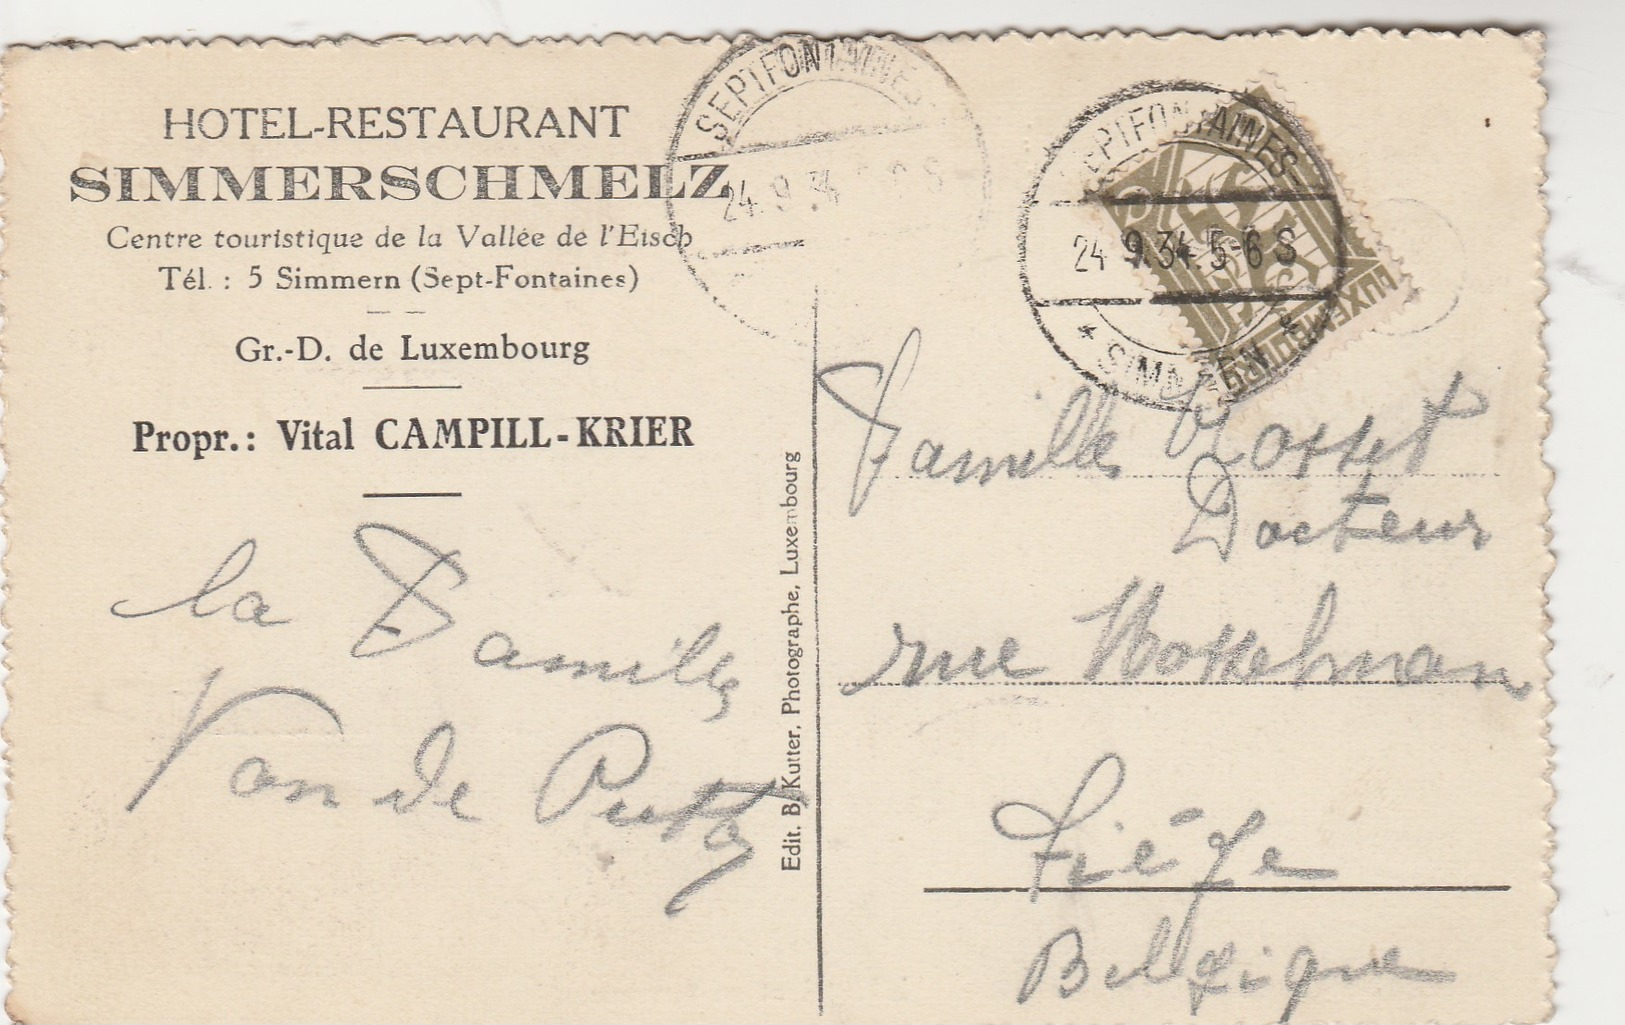 HOTEL-RESTAURANT
SIMMERSCHMELZ
Centre touristique de la Vallée de l'Eisch
Tél. : 5 Simmern (Sept-Fontaines)
Gr.-D. de Luxembourg
Propr.: Vital CAMPILL-KRIER
la Famille
Van de Putte
Edit. B. Kutter, Photographe, Luxembourg
SEPTFONTAINES
24.9.34
SEPTFONTAINES
24.9.34.5-6 S
* SIMMERN *
LUXEMBOURG
Famille
Docteur
rue
Liége
Belgique